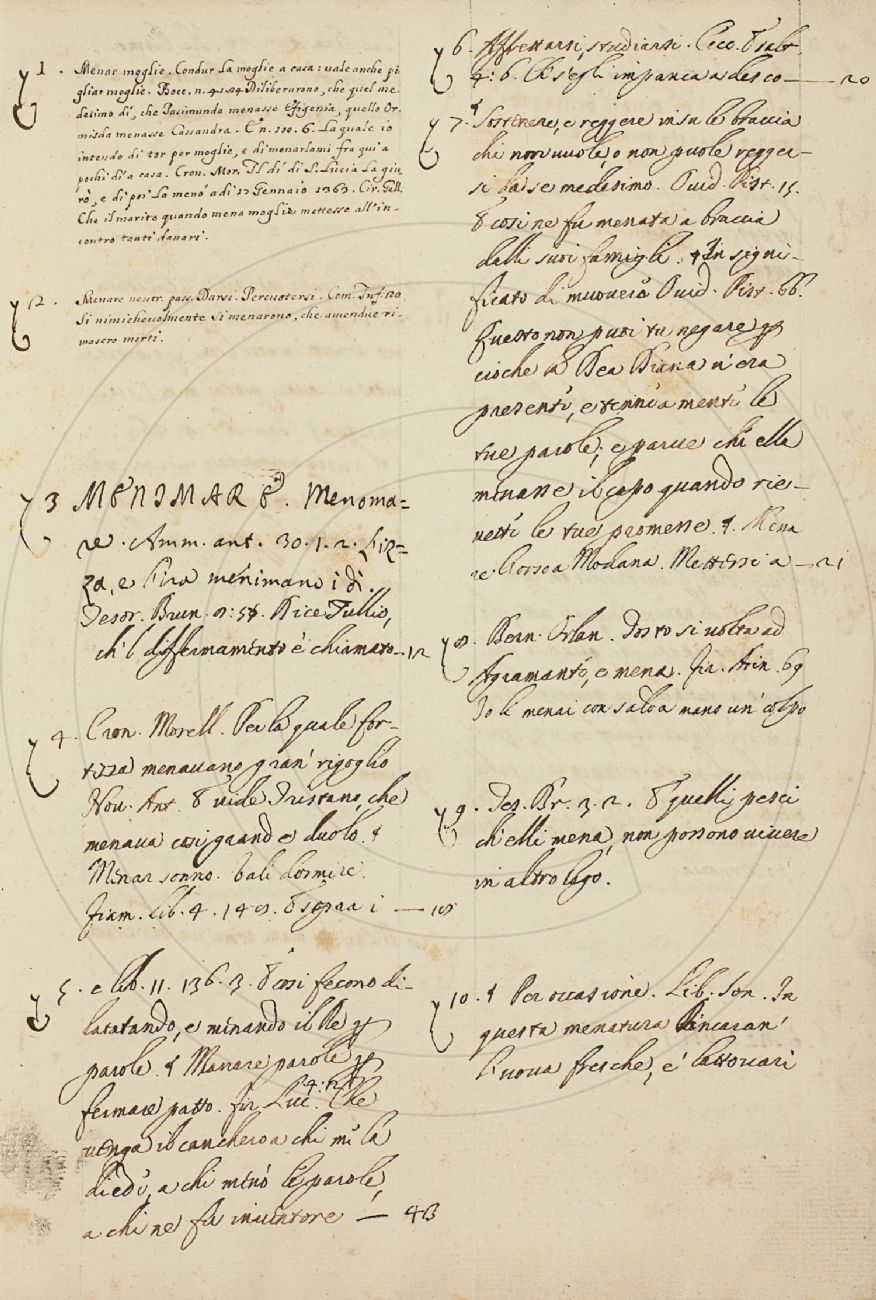 1. Menar moglie. Condur la moglie a casa: vale anche pi
gliar moglie. Bocc. n. 41. Diliberarono, che quel me-
desimo dí, che Pasimunda menasse Efigenia, quello Or-
misda menasse Cassandra. E n. 100. 6. La quale io
intendo di tor per moglie, e di menarlami fra qui a
pochi dí a casa. Cron. Mor. Il dí di S. Lucia la giu
rò, e di poi la menò a di 17 Gennaio 1363. Cir. Gell.
Che il marito quando mena moglie mettesse all'in-
contro tanti danari.
2. Menare neutr. pass. Darsi. Percuotersi. Com. Inf. 20
Si nimichevolmente si menarono, che amendue ri-
masero morti.
3 MENIMARE. Menoma=
re. Amm. ant. 30. 1. 2. Firz=
za, e l'ira menimano i dì.
Tesor. Brun. Dice Tullio,
ch'l differmamento è chiamato - 12
4. Cron. Morell. Per la quale for-
tezza menavano gran rigoglio
Nov. Ant. E vide Tristano, che
menava cosi grande duolo. ¶
Menar sonno. Val dormire.
Fiam. Lib. 4. E sopra i — 18
5. e lib. 11. 136. 3. E così fecono di-
latando, e menando il Re p
parole. ¶ Menare parole p
fermare patto. Fir. Luc. 4. Che
venga il canchero a chi me la
diedi, a chi menò le parole,
a chi ne fu inventore — 43
6. Affrettarsi, studiarsi. Cecc. Esalt
4: 6. E s'egli impancia a desco — 20
7. ¶ Sostenere, e reggere in su le braccia
chi non vuole, o non puole regger-
si da se medesimo. Ovid. Pist. 15.
E così ne fu menata a braccia
dalli suoi famigli. ¶ In signi-
ficato di muovere Ovid. Pist. 66.
Questo non puoi tu negare p
cioche la Dea Diana v'era
presente, e tenne a mente le
tue parole; e parve che ella
menasse il capo quando rice-
vette le tue promesse. ¶. Mena
re Modana. Mettersi a — 21
8. Bern. Orlan. Tosto si volta ad
Agramante, e mena. Fir. Asin. 69
Io le menai con salda mano un colpo
9. Tes. Br. 3. 2. E quelli pesci
ch'elli mena, non possono vivere
in altro lago.
10. ¶ Per occasione. Lib. Son. In
questa menatura rincaran'
l'uova fresche, e' lattovari